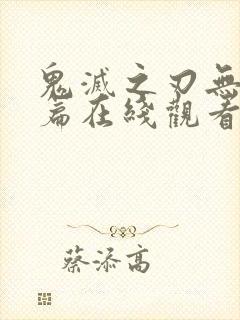 鬼滅之刃無
篇在綫觀看
蔡添高